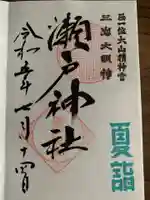 正一位大山積神宮
三島大明神
夏詣
瀬戸神社
令和五年七月十四日